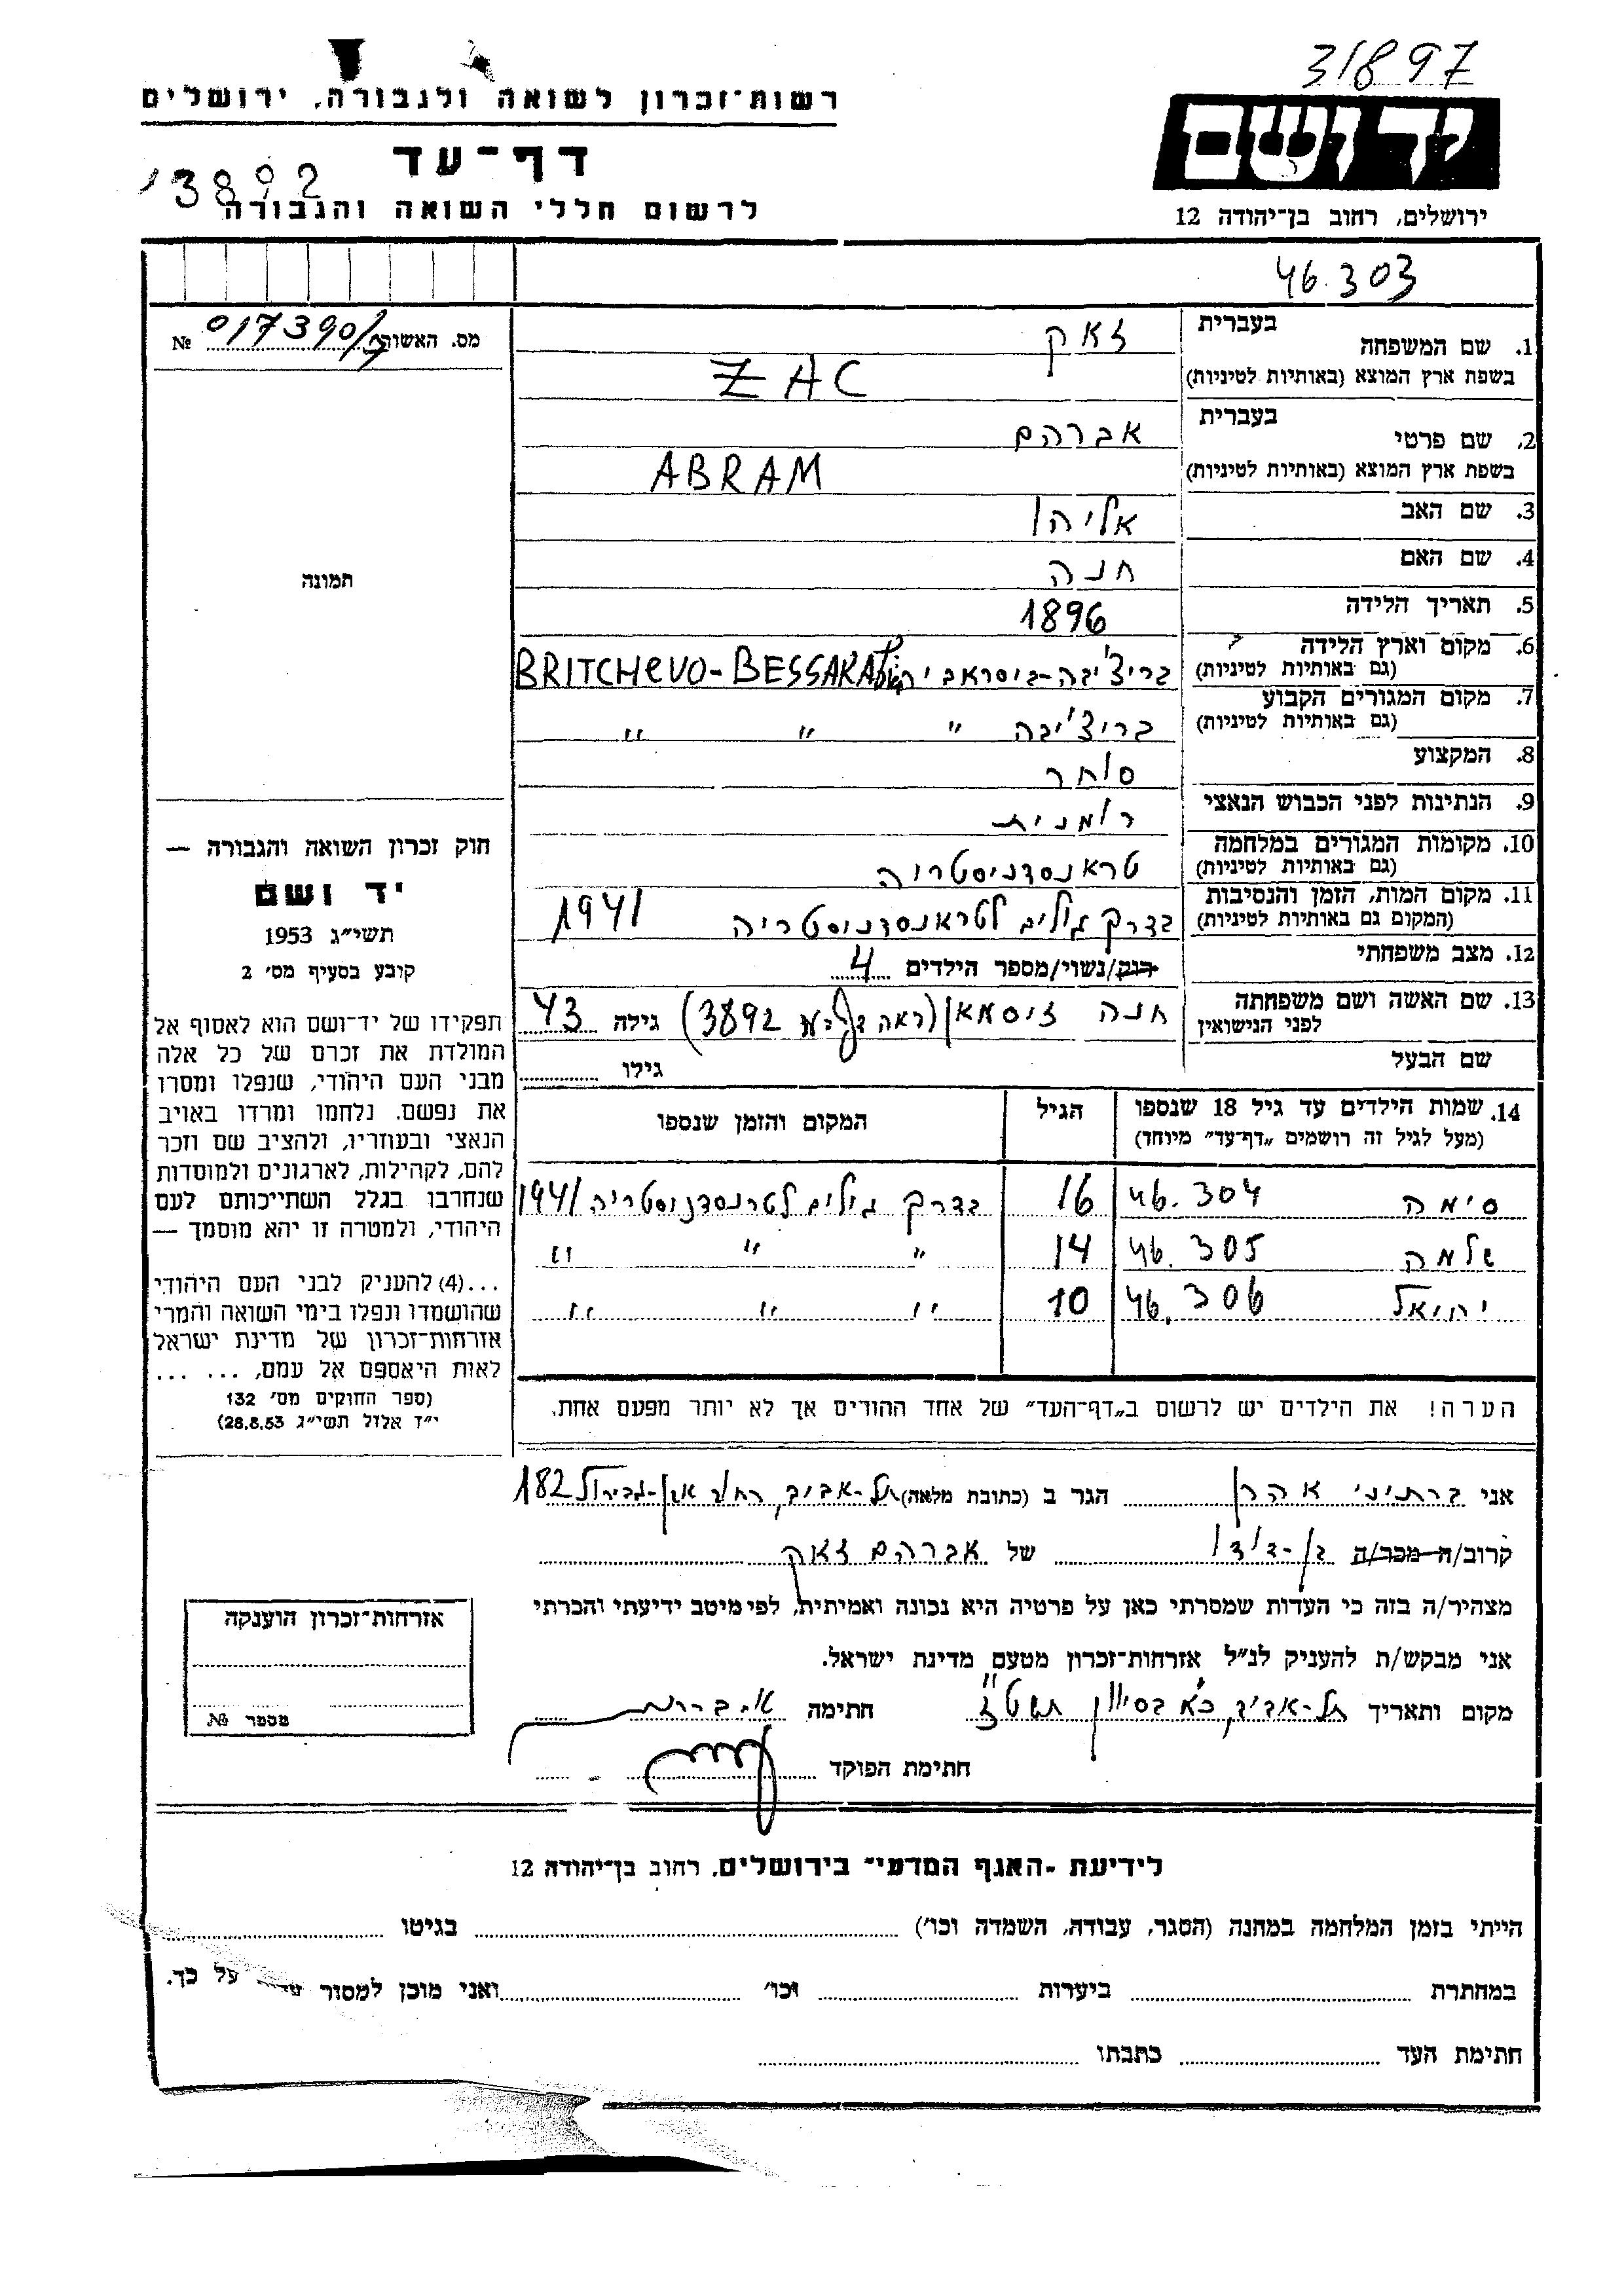 31897
רשות־זכרון לשואה ולגבורה, ירושלים
ידושם
דף־עד
3892
לרשום חללי השואה והגבורה
ירושלים, רחוב בן־יהודה 12
46.303
מס. האשור № 017390/
1. שם המשפחה
בעברית זאק
בשפת ארץ המוצא (באותיות לטיניות) ZAC
2. שם פרטי
בעברית אברהם
בשפת ארץ המוצא (באותיות לטיניות) ABRAM
3. שם האב אליהו
4. שם האם חנה
5. תאריך הלידה 1896
6. מקום וארץ הלידה (גם באותיות לטיניות) בריצ'יבה-ביסראביה BRITCHEVO-BESSARA
7. מקום המגורים הקבוע (גם באותיות לטיניות) בריצ'יבה " " "
8. המקצוע סוחר
9. הנתינות לפני הכבוש הנאצי רומנית
10. מקומות המגורים במלחמה (גם באותיות לטיניות) טראנסדניסטריה
11. מקום המות, הזמן והנסיבות (המקום גם באותיות לטיניות) בדרך גולים לטראנסדניסטריה 1941
12. מצב משפחתי רוק/נשוי/מספר הילדים 4
13. שם האשה ושם משפחתה לפני הנישואין חנה זיסמאן (ראה דף 3892) גילה 43
שם הבעל גילו
14. שמות הילדים עד גיל 18 שנספו (מעל לגיל זה רושמים „דף־עד" מיוחד) הגיל המקום והזמן שנספו
סימה 46.304 16 בדרך גולים לטרנסדניסטריה 1941
שלמה 46.305 14 " " "
יחיאל 46.306 10 " " "
הערה! את הילדים יש לרשום ב„דף־העד" של אחד ההורים אך לא יותר מפעם אחת.
תמונה
חוק זכרון השואה והגבורה —
יד ושם
תשי"ג 1953
קובע בסעיף מס' 2
תפקידו של יד־ושם הוא לאסוף אל
המולדת את זכרם של כל אלה
מבני העם היהודי, שנפלו ומסרו
את נפשם. נלחמו ומרדו באויב
הנאצי ובעוזריו, ולהציב שם וזכר
להם, לקהילות, לארגונים ולמוסדות
שנחרבו בגלל השתייכותם לעם
היהודי, ולמטרה זו יהא מוסמך —
...(4) להעניק לבני העם היהודי
שהושמדו ונפלו בימי השואה והמרי
אזרחות־זכרון של מדינת ישראל
לאות היאספם אל עמם, ... ...
(ספר החוקים מס' 132
י"ד אלול תשי"ג 28.8.53)
אני ברתיני אהרן הגר ב (כתובת מלאה) תל-אביב, רחוב אבן-גבירול 182
קרוב/ה מכר/ה בן-דודו של אברהם זאק
מצהיר/ה בזה כי העדות שמסרתי כאן על פרטיה היא נכונה ואמיתית, לפי מיטב ידיעתי והכרתי
אני מבקש/ת להעניק לנ"ל אזרחות־זכרון מטעם מדינת ישראל.
מקום ותאריך תל-אביב, כ"א בסיוון תשט"ז חתימה
חתימת הפוקד
אזרחות־זכרון הוענקה
מספר №
לידיעת „האגף המדעי" בירושלים, רחוב בן־יהודה 12
הייתי בזמן המלחמה במחנה (הסגר, עבודה, השמדה וכו') בגיטו
במחתרת ביערות וכו' ואני מוכן למסור על כך.
חתימת העד כתבתו